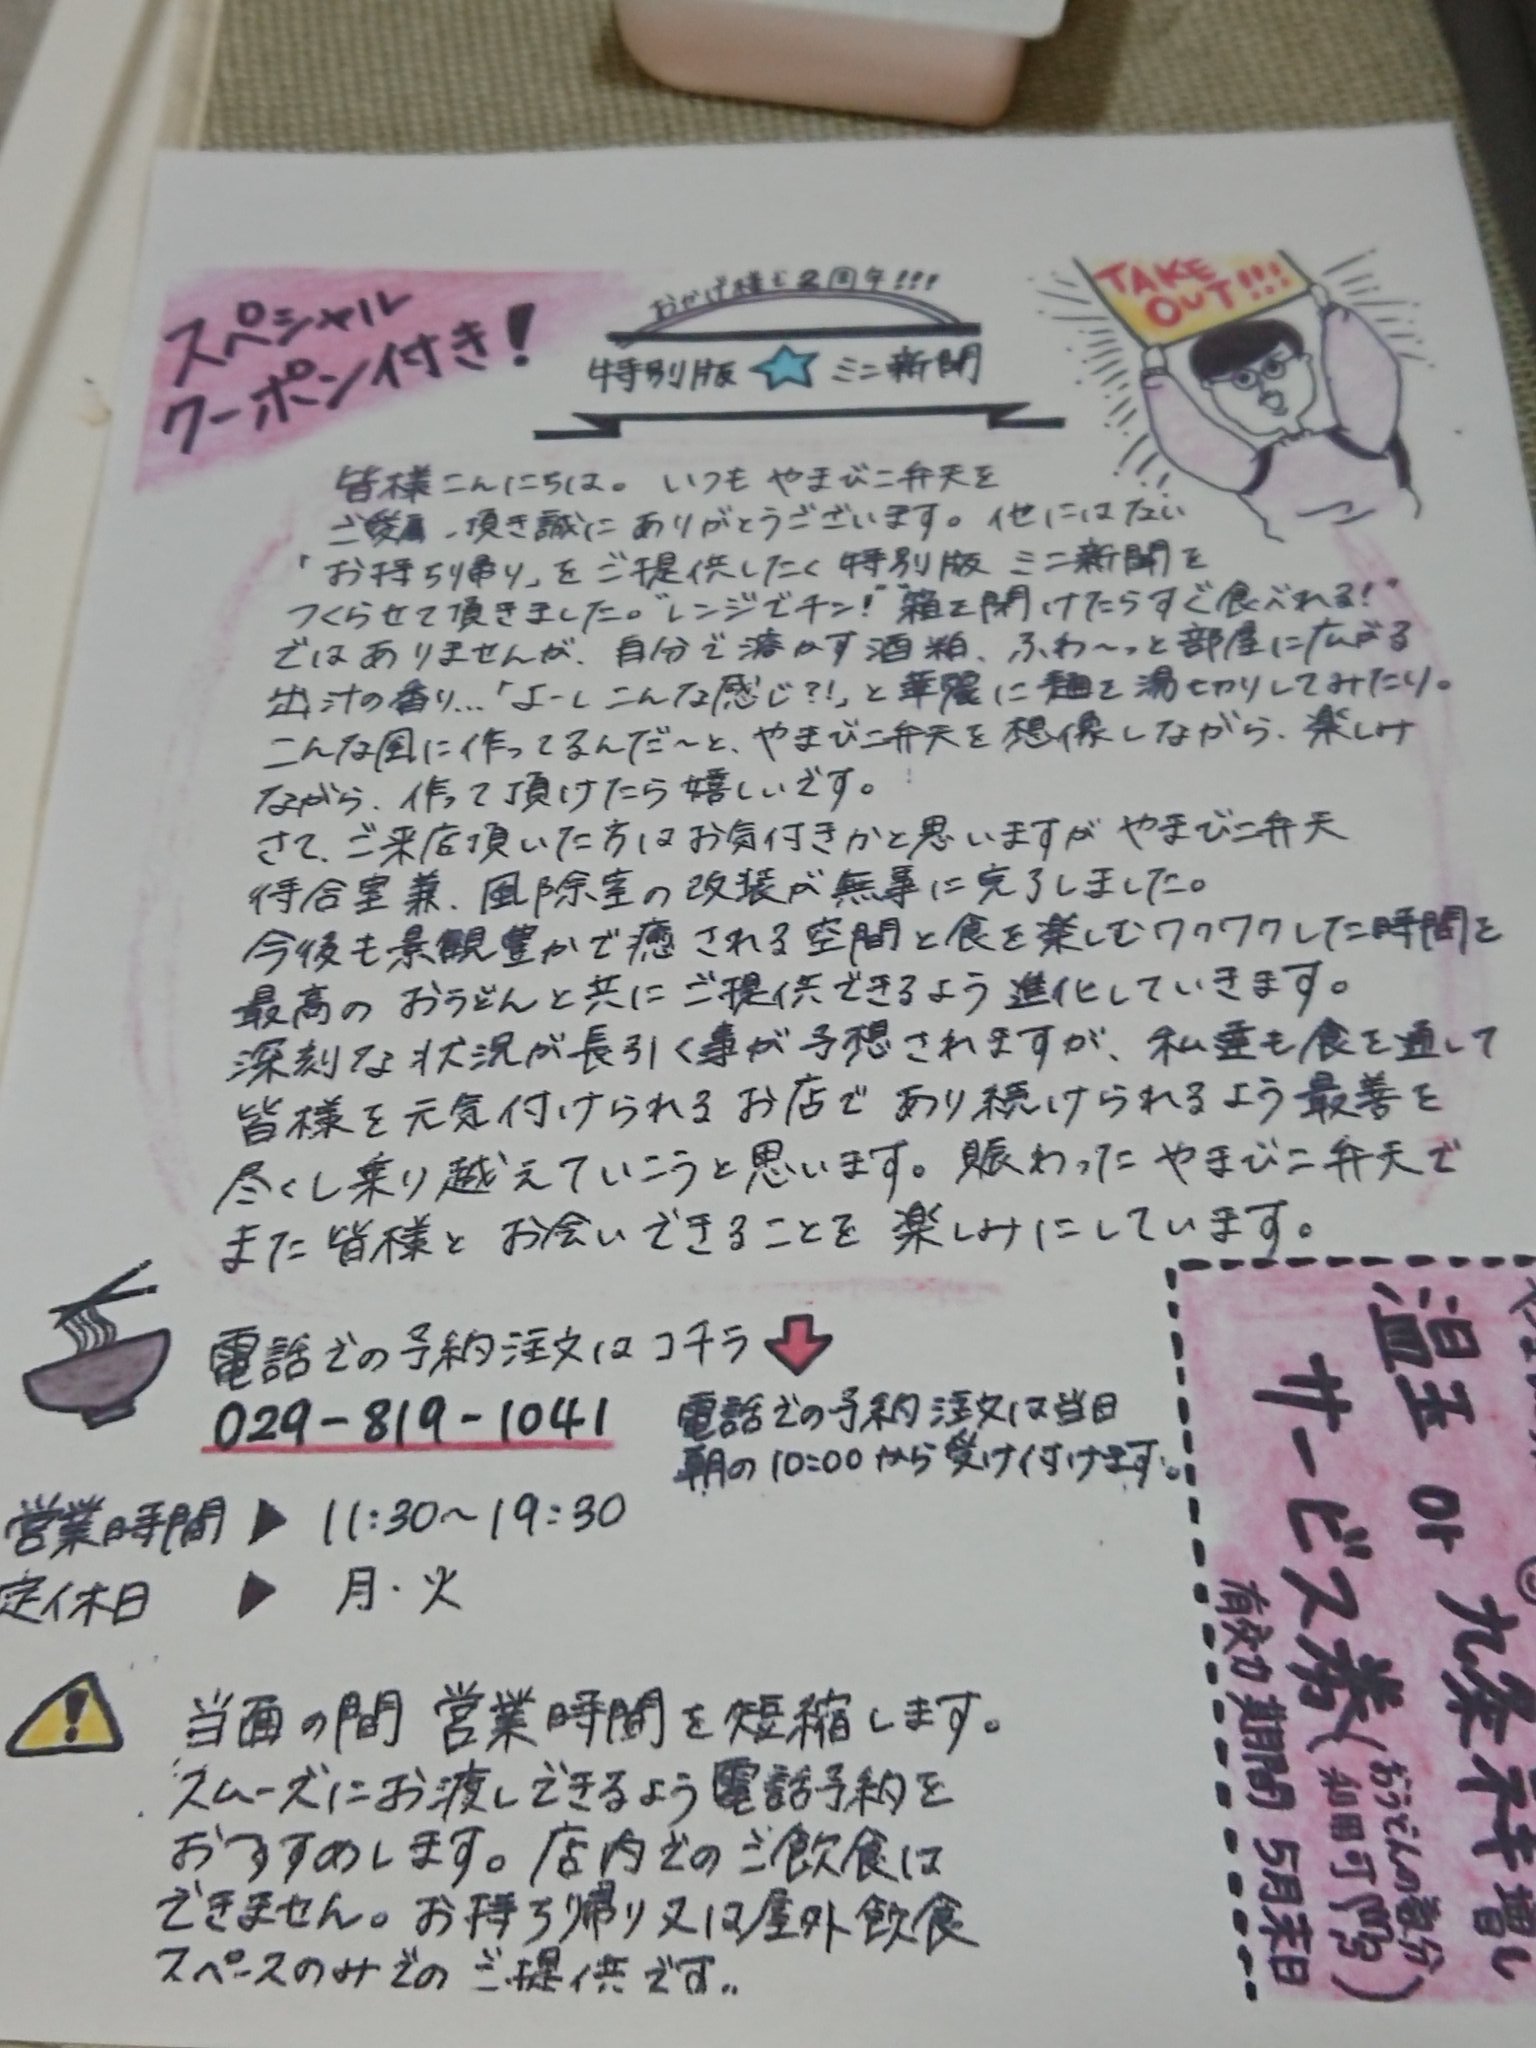 スペシャル
クーポン付き!
おかげ様で2周年!!!
特別版 ★ ミニ新聞
TAKE
OUT!!!
皆様こんにちは。いつも やまびこ弁天を
ご愛顧 頂き誠にありがとうございます。他にはない
「お持ち帰り」をご提供したく特別版 ミニ新聞を
つくらせて頂きました。"レンジでチン!" "箱を開けたらすぐ食べれる!"
ではありませんが、自分で溶かす酒粕、ふわ〜っと部屋に広がる
出汁の香り…「よーしこんな感じ?!」と華麗に麺を湯切りしてみたり。
こんな風に作ってるんだ〜と、やまびこ弁天を想像しながら、楽しみ
ながら、作って頂けたら嬉しいです。
さて、ご来店頂いた方はお気付きかと思いますが やまびこ弁天
待合室兼、風除室の改装が無事に完了しました。
今後も景観豊かで癒される空間と食を楽しむワクワクした時間を
最高の おうどんと共に ご提供できるよう進化していきます。
深刻な状況が長引く事が予想されますが、私達も食を通して
皆様を元気付けられるお店で あり続けられるよう最善を
尽くし乗り越えていこうと思います。賑わった やまびこ弁天で
また皆様と お会いできることを 楽しみにしています。
電話での予約注文は コチラ
029-819-1041
電話での予約注文は当日
朝の10:00から受け付けます。
営業時間 ▶ 11:30〜19:30
定休日 ▶ 月・火
当面の間 営業時間を短縮します。
スムーズにお渡しできるよう電話予約を
おすすめします。店内でのご飲食は
できません。お持ち帰り又は屋外飲食
スペースのみでのご提供です。
温玉 or 九条ネギ増し
サービス券(おうどんの書分
有効期間 5月末日